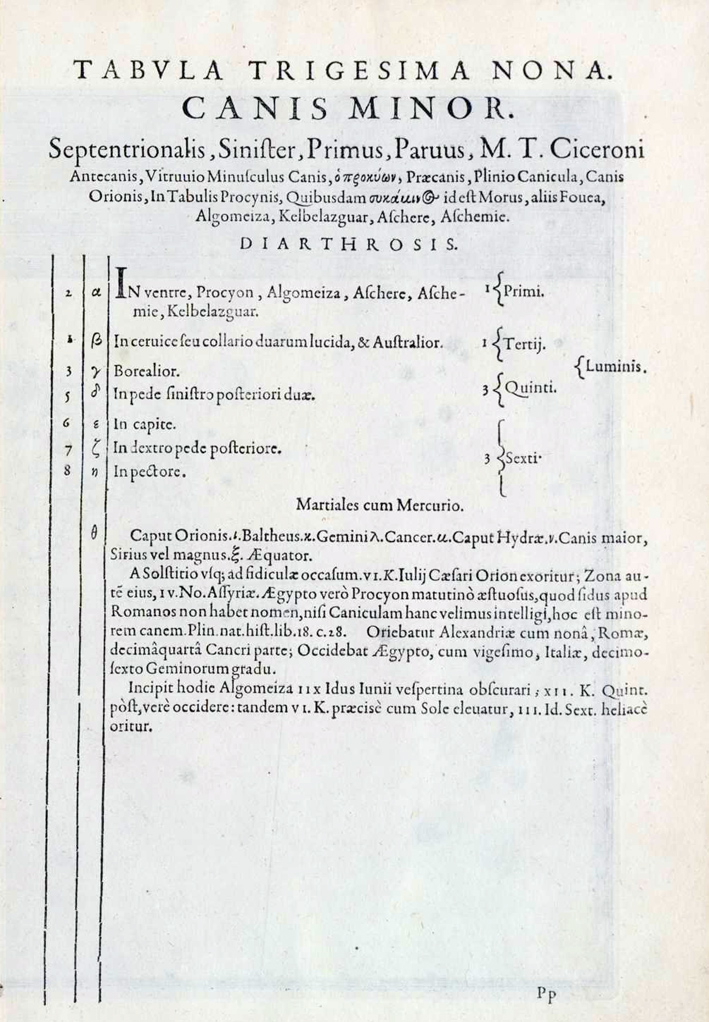 TABVLA TRIGESIMA NONA.
CANIS MINOR.
Septentrionalis, Siniſter, Primus, Paruus, M. T. Ciceroni
Antecanis, Vitruuio Minuſculus Canis, ὁ προκύων, Præcanis, Plinio Canicula, Canis
Orionis, In Tabulis Procynis, Quibusdam id eſt Morus, aliis Fouea,
Algomeiza, Kelbelazguar, Aſchere, Aſchemie.
DIARTHROSIS.
2 α IN ventre, Procyon, Algomeiza, Aſchere, Aſche- 1 { Primi.
mie, Kelbelazguar.
β In ceruice ſeu collario duarum lucida, & Auſtralior. 1 { Tertij.
3 γ Borealior. { Luminis.
5 δ In pede ſiniſtro poſteriori duæ. 3 { Quinti.
6 ε In capite.
7 ζ In dextro pede poſteriore. 3 { Sexti.
8 η In pectore.
Martiales cum Mercurio.
θ Caput Orionis.ι.Baltheus.κ.Gemini λ.Cancer.μ.Caput Hydræ.ν.Canis maior,
Sirius vel magnus.ξ. Æquator.
A Solſtitio vſq; ad fidiculæ occaſum.VI.K.Iulij Cæſari Orion exoritur; Zona au-
tē eius, IV.No.Aſſyriæ. Ægypto verò Procyon matutinò æſtuoſus, quod ſidus apud
Romanos non habet nomen, niſi Caniculam hanc velimus intelligi, hoc eſt mino-
rem canem. Plin. nat. hiſt. lib. 18. c. 28. Oriebatur Alexandriæ cum nonâ, Romæ,
decimâquartâ Cancri parte; Occidebat Ægypto, cum vigeſimo, Italiæ, decimo-
ſexto Geminorum gradu.
Incipit hodie Algomeiza IIX Idus Iunii veſpertina obſcurari; XII. K. Quint.
pòſt, verè occidere: tandem VI. K. præcisè cum Sole eleuatur, III. Id. Sext. heliacè
oritur.
Pp